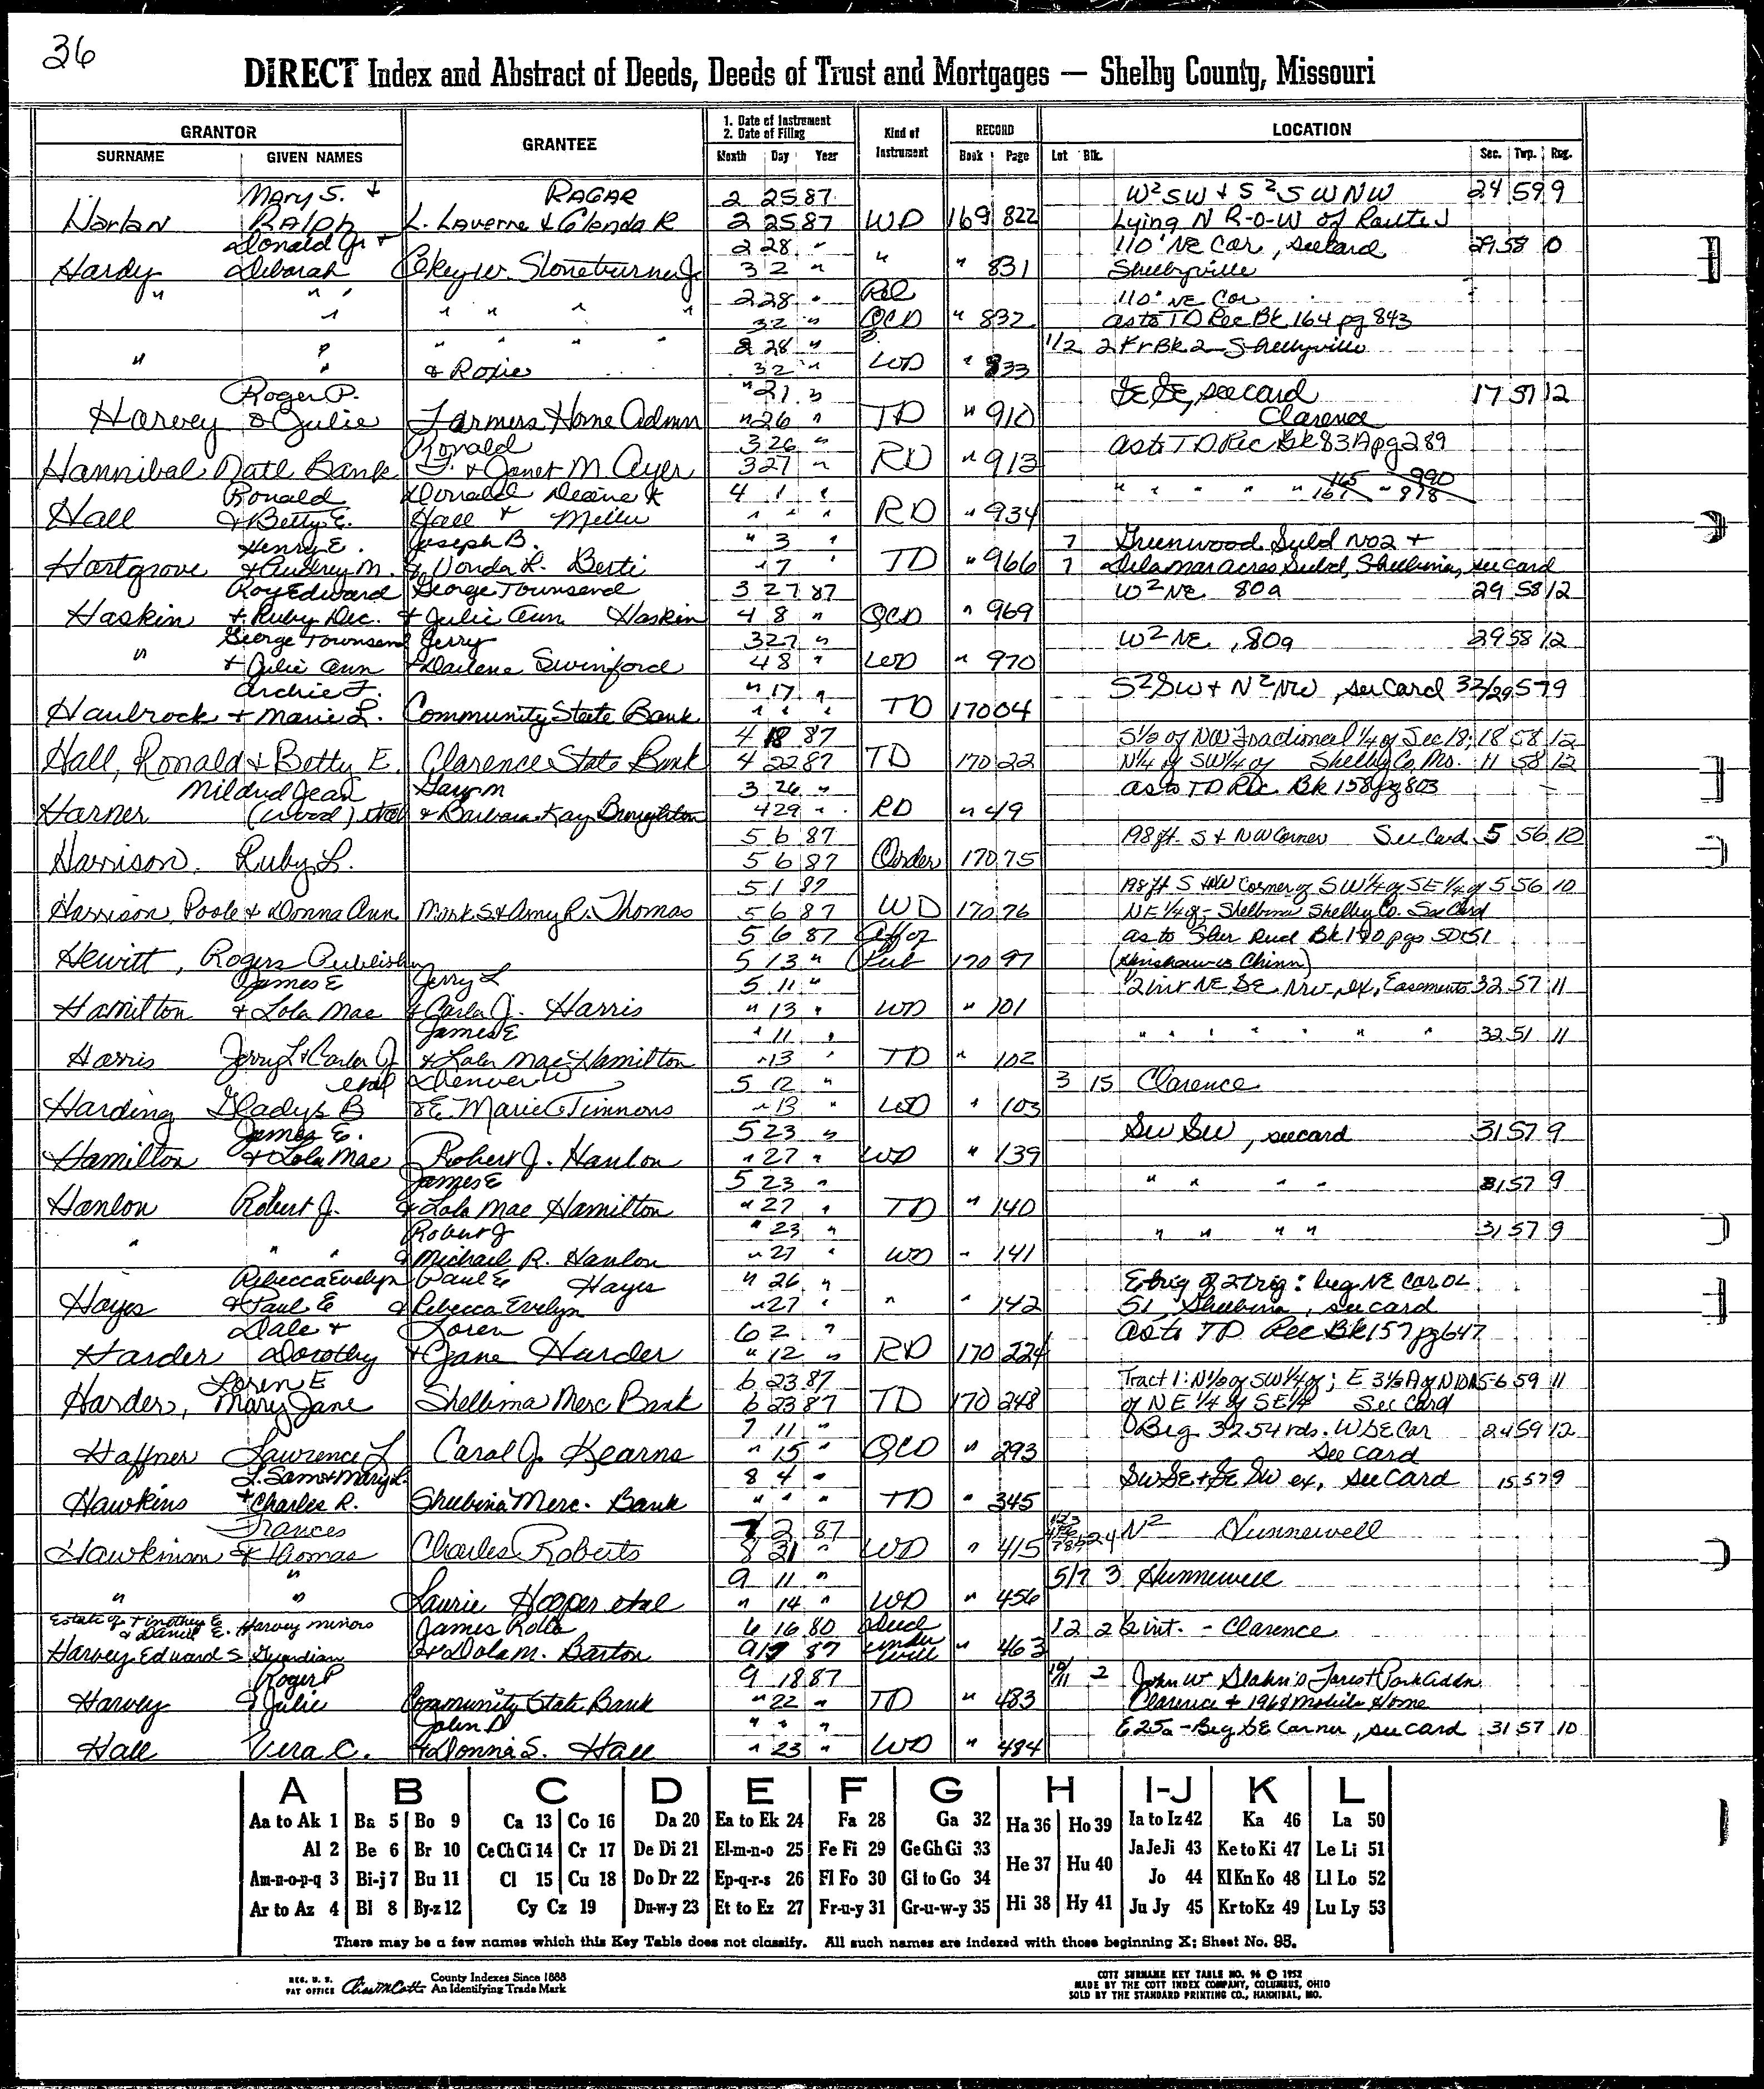 36
DIRECT Index and Abstract of Deeds, Deeds of Trust and Mortgages — Shelby County, Missouri
GRANTOR
SURNAME GIVEN NAMES
GRANTEE
1. Date of Instrument
2. Date of Filing
Month Day Year
Kind of Instrument
RECORD
Book Page
LOCATION
Lot Blk. Sec. Twp. Rng.
Mary S. & RAGAR 2 25 87 W² SW & S² S W NW 24 59 9
Harlan Ralph L. Laverne & Glenda R 2 25 87 WD 169 822 Lying N R-O-W of Route J
Donald Jr & 2 28 " 110' NE Cor, see card 58
Hardy Deborah Stoneburner Jr 3 2 " " " 831 Shelbyville
" " " 2 28 " Rel 110' NE Cor
" " " " " 3 2 " QCD " 832 as to TD Rec Bk 164 pg 843
" " " " 2 28 " 1/2 2 Kr Bk 2 - Shelbyville
" " & Roxie 3 2 " WD " 833
Roger P. " 21 " SE SE, see card 17 57 12
Harvey & Julie Farmers Home Admn " 26 " TD " 910 Clarence
Ronald 3 26 " as to TD Rec Bk 83A pg 289
Hannibal Natl Bank & Janet M Ayer 3 27 " RD " 913
Ronald Donald Deaine K 4 1 " " " " " " 165 990
Hall & Betty E. Hall & " " " RD " 934
Henry E. Joseph B. " 3 " 7 Greenwood Subd No 2 &
Hartgrove & Audrey M. & Vonda L. Berti " 7 " TD " 966 7 Delamar acres Subd, Shelbina, see card
Roy Edward George Townsend 3 27 87 W² NE 80a 29 58 12
Haskin & Ruby Dec. & Julie Ann Haskin 4 8 " QCD " 969
George Townsend Jerry 3 27 " W² NE, 80a 29 58 12
" & Julie Ann & Darlene Swinford 4 8 " WD " 970
Archie F. " 17 " S² SW & N² NW, see Card 32/29 57 9
Haubrock & Marie L. Community State Bank " " " TD 170 04
4 18 87 S½ of NW Fractional ¼ of Sec 18; 18 58 12
Hall, Ronald & Betty E. Clarence State Bank 4 22 87 TD 170 22 N¼ of SW¼ of Shelby Co, Mo. 11 58 12
Mildred Jean Gary M 3 26 " as to TD Rec Bk 158 pg 803
Harner (Wood) etal & Barbara Kay Broughton 4 29 " RD " 49
5 6 87 198 ft. S & NW Corner See Card 5 56 10
Harrison, Ruby L. 5 6 87 Order 170 75
5 1 87 198 ft S NW Corner of SW¼ of SE¼ of 5 56 10
Harrison, Poole & Donna Ann Mark S & Amy R. Thomas 5 6 87 WD 170 76 NE¼ of - Shelbina Shelby Co. See Card
5 6 87 Aff of as to Bk 170 pgs 50 & 51
Hewitt, Rogers Publisher 5 13 " Pub 170 97 (Henshaw vs Chinn)
James E Jerry L 5 11 " ½ int NE SE NW, ex, Easements 32 57 11
Hamilton & Lola Mae & Carla J. Harris " 13 " WD " 101
James E " 11 " " " " " " " " 32 51 11
Harris Jerry L & Carla J & Lola Mae Hamilton " 13 " TD " 102
etal Denver W 5 12 " 3 15 Clarence
Harding Gladys B & E. Marie Timmons " 13 " WD " 103
James E. 5 23 " SW SW, see card 31 57 9
Hamilton & Lola Mae Robert J. Hanlon " 27 " WD " 139
James E 5 23 " " " " " 31 57 9
Hanlon Robert J. & Lola Mae Hamilton " 27 " TD " 140
Robert J " 23 " " " " " 31 57 9
" " " & Michael R. Hanlon " 27 " WD " 141
Rebecca Evelyn Paul E Hayes " 26 " E trig of 2 trig: beg NE cor OL
Hayes & Paul E & Rebecca Evelyn " 27 " " " 142 51, Shelbina, see card
Dale & Loren 6 2 " as to TD Rec Bk 157 pg 647
Harder Dorothy & Jane Harder " 12 " RD 170 224
Loren E 6 23 87 Tract 1: N½ of SW¼ of; E 3½ A of 59 11
Harder, Mary Jane Shelbina Merc Bank 6 23 87 TD 170 248 of NE ¼ of SE¼ See Card
7 11 " Beg 32.54 rds. W SE Cor 24 59 12
Haffner Lawrence L Carol J. Kearns " 15 " QCD " 293 see card
L. Sam & Mary L. 8 4 " SW SE & SE SW ex, see card 15 57 9
Hawkins & Charles R. Shelbina Merc. Bank " " " TD " 345
Frances 7 2 87 24 N² Hunnewell
Hawkinson & Thomas Charles Roberts 8 21 " WD " 415
" 9 11 " 5/7 3 Hunnewell
" " Laurie Hooper etal " 14 " WD " 456
Estate of Timothy E. & Daniel E. Harvey minors James Rolla 6 16 80 Deed 12 2 ½ int. - Clarence
Harvey Edward S Guardian & Dola M. Barton 9 17 87 under will " 463
Roger P 9 18 87 10/11 2 John W Forest Park Addn
Harvey & Julie Community State Bank " 22 " TD " 483 Clarence & 1968 Mobile Home
John D " " " E 25a - Beg SE Corner, see card 31 57 10
Hall Vera C. & Donna S. Hall " 23 " WD " 484
A B C D E F G H I-J K L
Aa to Ak 1 Ba 5 Bo 9 Ca 13 Co 16 Da 20 Ea to Ek 24 Fa 28 Ga 32 Ha 36 Ho 39 Ia to Iz 42 Ka 46 La 50
Al 2 Be 6 Br 10 Ce Ch Ci 14 Cr 17 De Di 21 El-m-n-o 25 Fe Fi 29 Ge Gh Gi 33 He 37 Hu 40 Ja Je Ji 43 Ke to Ki 47 Le Li 51
Am-n-o-p-q 3 Bi-j 7 Bu 11 Cl 15 Cu 18 Do Dr 22 Ep-q-r-s 26 Fl Fo 30 Gl to Go 34 Jo 44 Kl Kn Ko 48 Ll Lo 52
Ar to Az 4 Bl 8 By-z 12 Cy Cz 19 Du-w-y 23 Et to Ez 27 Fr-u-y 31 Gr-u-w-y 35 Hi 38 Hy 41 Ju Jy 45 Kr to Kz 49 Lu Ly 53
There may be a few names which this Key Table does not classify. All such names are indexed with those beginning X; Sheet No. 95.
REG. U. S. PAT OFFICE County Indexes Since 1888 An Identifying Trade Mark
COTT SURNAME KEY TABLE NO. 96 © 1952
MADE BY THE COTT INDEX COMPANY, COLUMBUS, OHIO
SOLD BY THE STANDARD PRINTING CO., HANNIBAL, MO.